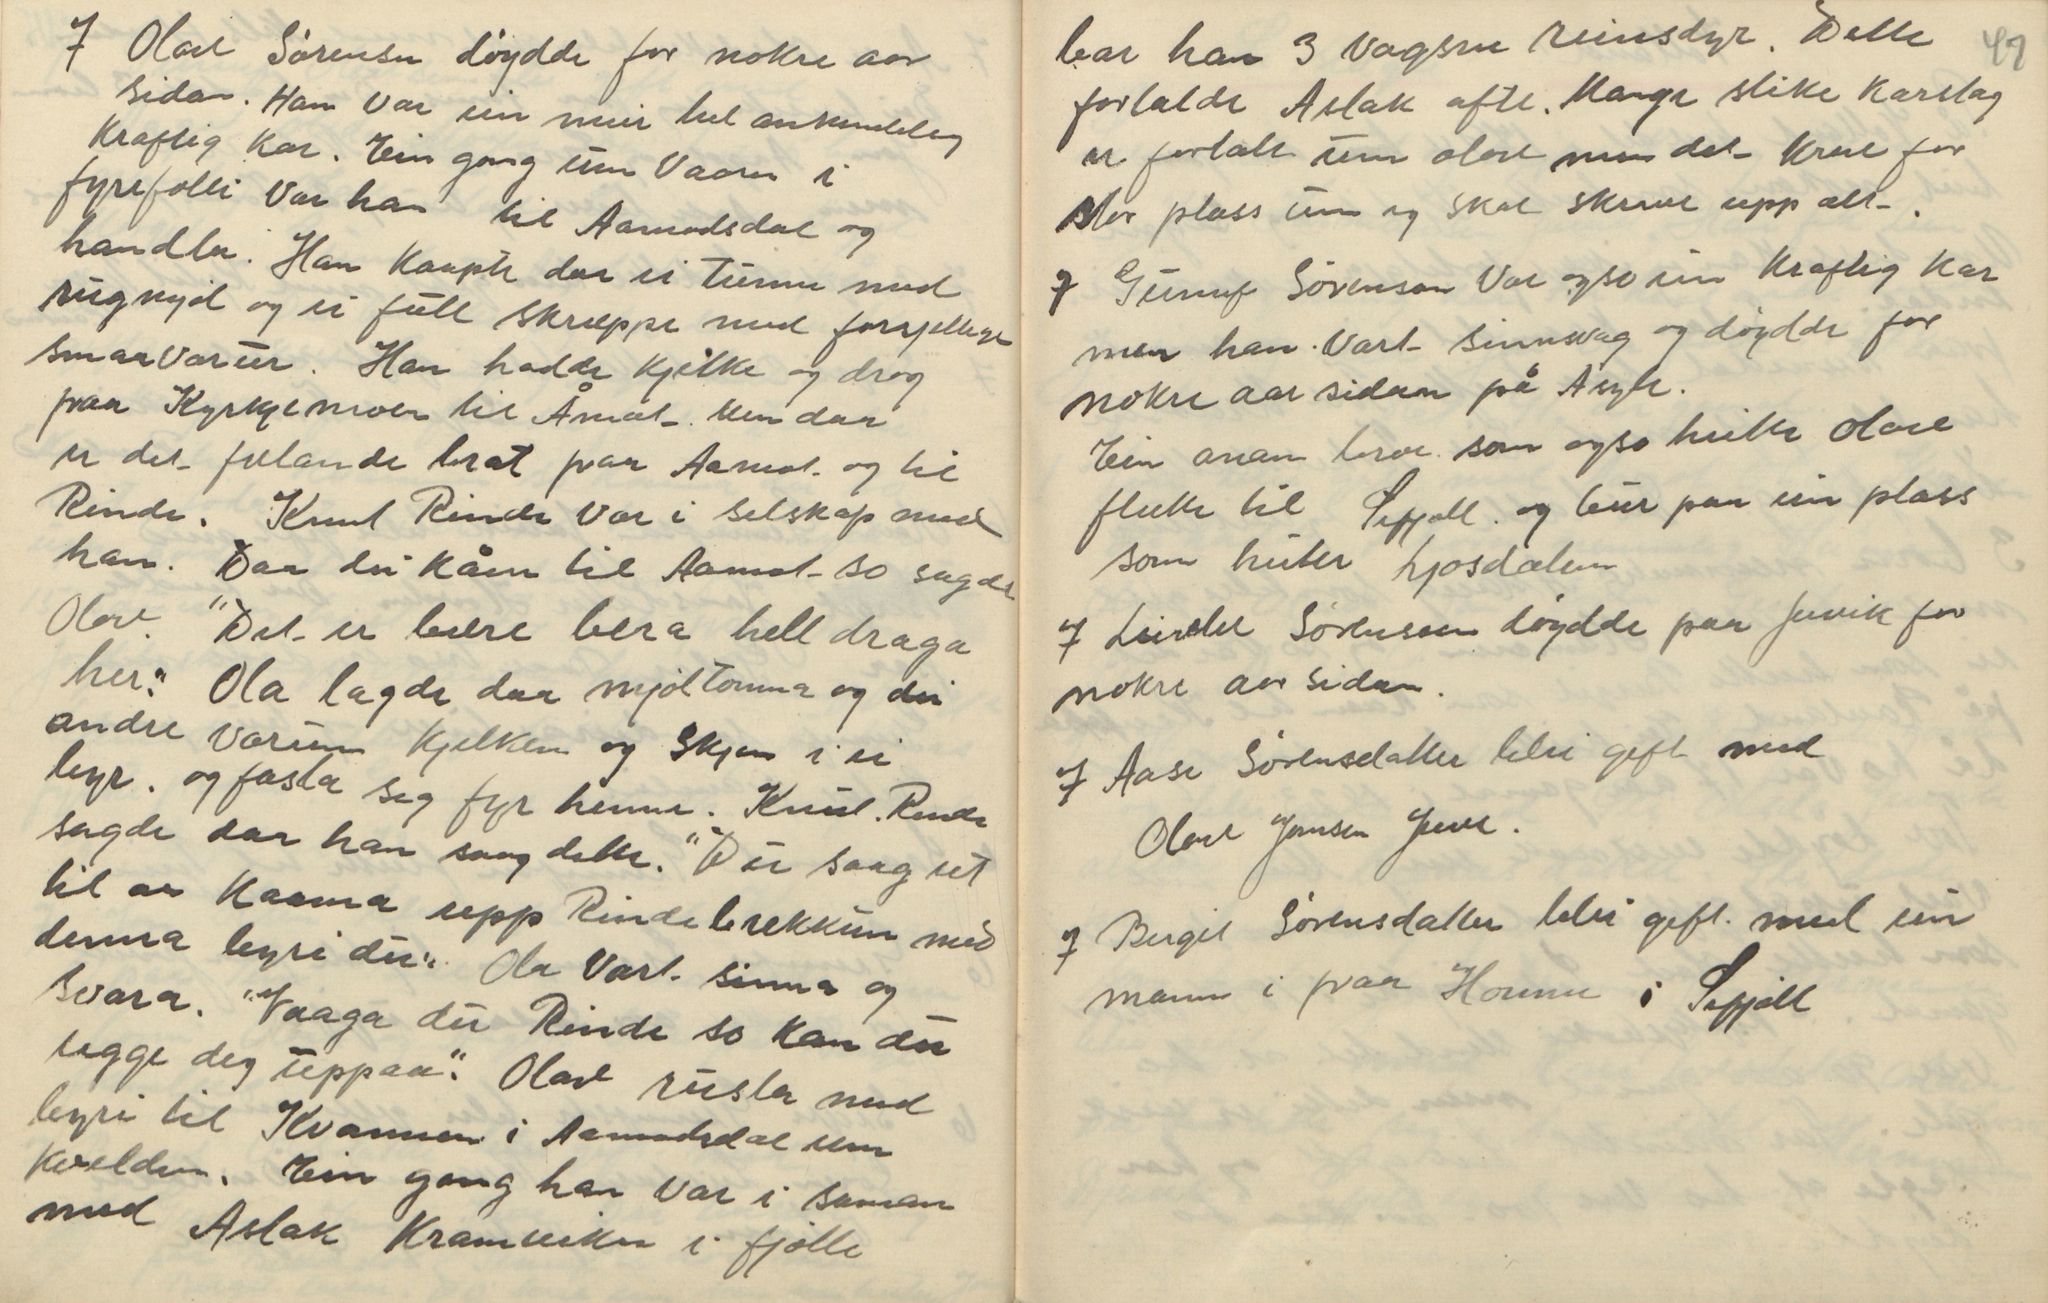 7 Olav Sörensen döydde for nokre aar
sidan. Han var ein meir hel ankundeleg
kraftig kar. Ein gong um Vaaren i
fyrefolli var han til Aamodsdal og
handla. Han kaupte dar ei tunne med
rugmjöl og ei full skreppe med forsjellige
smaavarur. Han hadde kjelke og drog
fraa Kyrkjemoen til Åmot. Men daa
er det folande brat fraa Aamot og til
Rinde. Knut Rinde var i selskap med
han. Daa dei kåm til Aamot so sagde
Olav. "Det er beire bera hell draga
her." Ola lagde daa mjöltonna og dei
andre varum kjelken og skjen i ei
byr. og fasta seg fyr henne. Knut Rinde
sagde daa han saag dette. "Du saag ut
til aa kaama upp Rindebrekkun med
denna byri du". Ola vart sinna og
svara. "Vaaga du Rinde so kan du
legge deg uppaa". Olav rusla med
byri til Kvannen i Aamodsdal um
kvelden. Ein gong han var i saman
med Aslak Kramviken i fjölle
49
bar han 3 vagsne reinsdyr. Dette
fortalde Aslak ofte. Mange slike karslag
er fortalt um olav men det kreve for
stor plass um eg skal skrive upp alt.
7 Gunuf Sörenson var ogso ein kraftig kar
men han vart sinnsvag og döydde for
nokre aar sidaan på Asyle.
Ein anan bror som ogso heitte Olav
flutte til Sefjall og bur paa ein plass
som heiter Ljosdalen
7 Leidul Sörensen döydde paa Juvik for
nokre aar sidan.
7 Aase Sörensdatter blei gift med
Olav Jonsen Juve.
7 Bergit Sörensdatter blei gift med ein
mann i fraa Homme i Sefjall